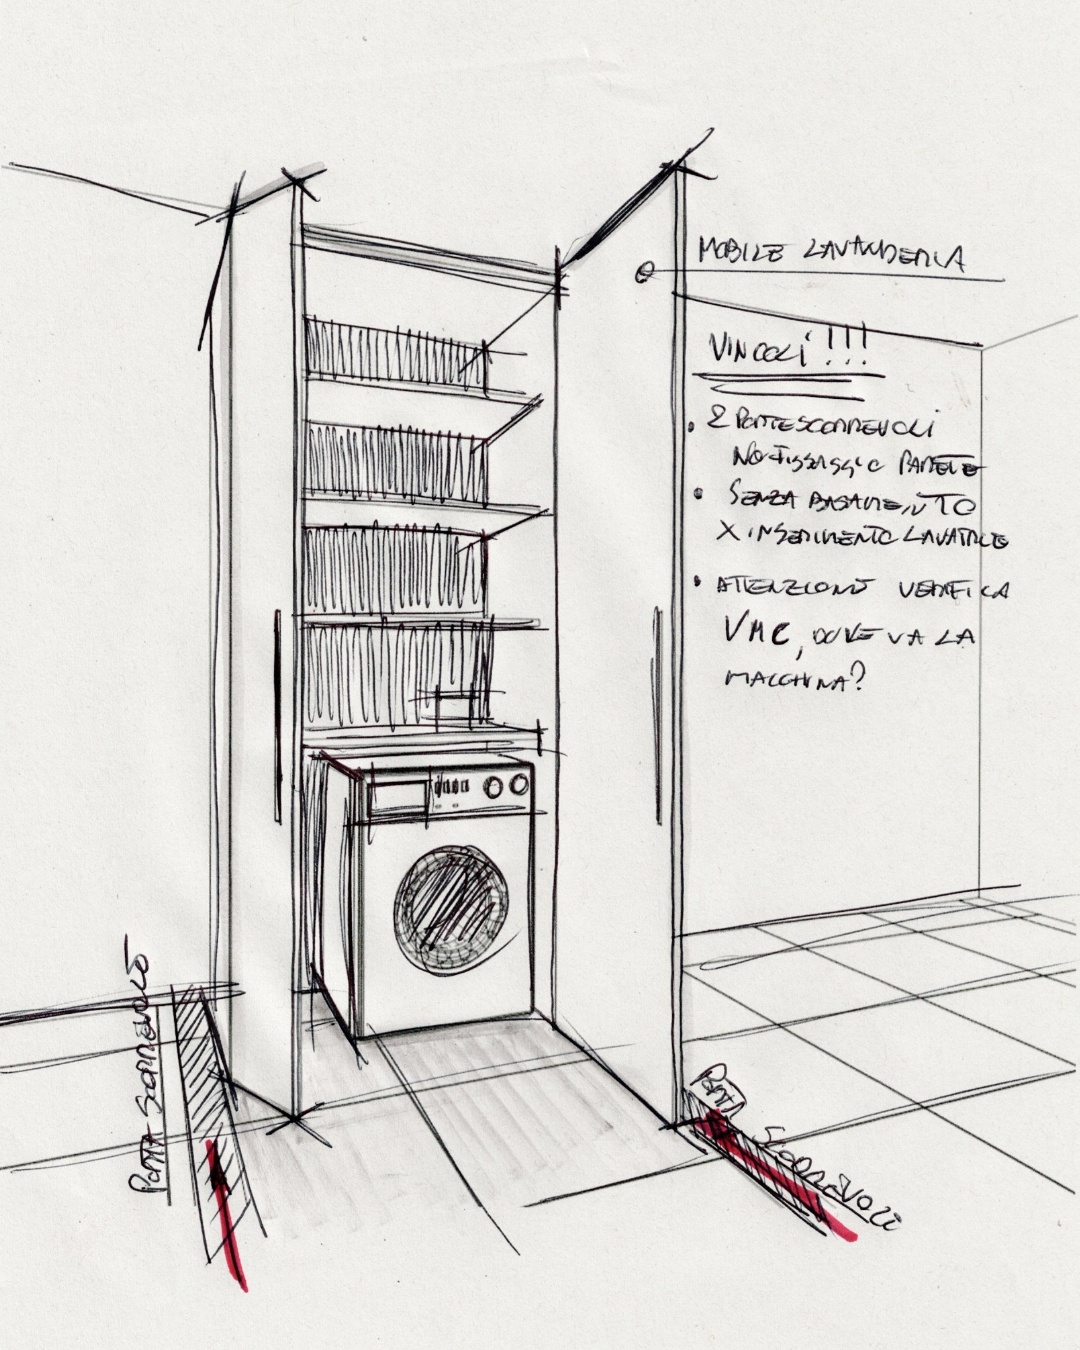 MOBILE LAVANDERIA
VINCOLI !!!
• 2 PORTE SCORREVOLI
NO FISSAGGIO PARETE
• SENZA BASAMENTO
X INSERIMENTO LAVATRICE
• ATTENZIONE VERIFICA
VMC, DOVE VA LA
MACCHINA?
PORTA SCORREVOLE
PORTA SCORREVOLI